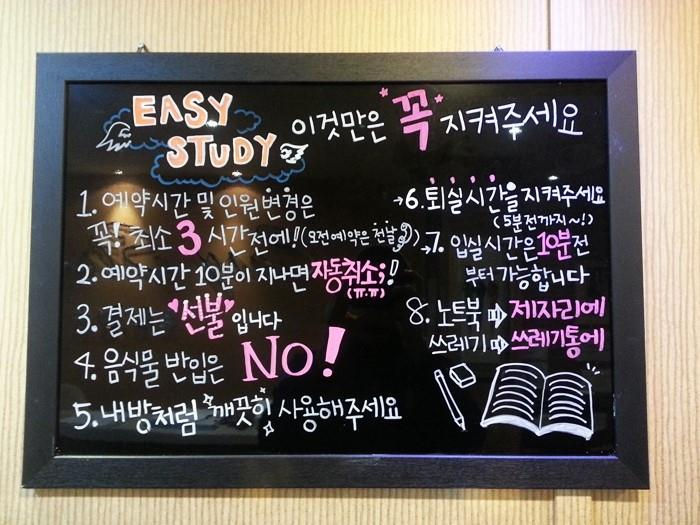 EASY
STUDY
이것만은 꼭 지켜주세요
1. 예약시간 및 인원변경은
꼭! 최소 3시간전에!! (오전예약은 전날)
2. 예약시간 10분이 지나면 자동취소;;!
(ㅠ.ㅠ)
3. 결제는 "선불" 입니다
4. 음식물 반입은 NO!
5. 내방처럼 깨끗히 사용해주세요
→6. 퇴실시간을 지켜주세요
(5분전까지~!)
→7. 입실시간은 10분전
부터 가능합니다
8. 노트북 ⇨ 제자리에
쓰레기 ⇨ 쓰레기통에